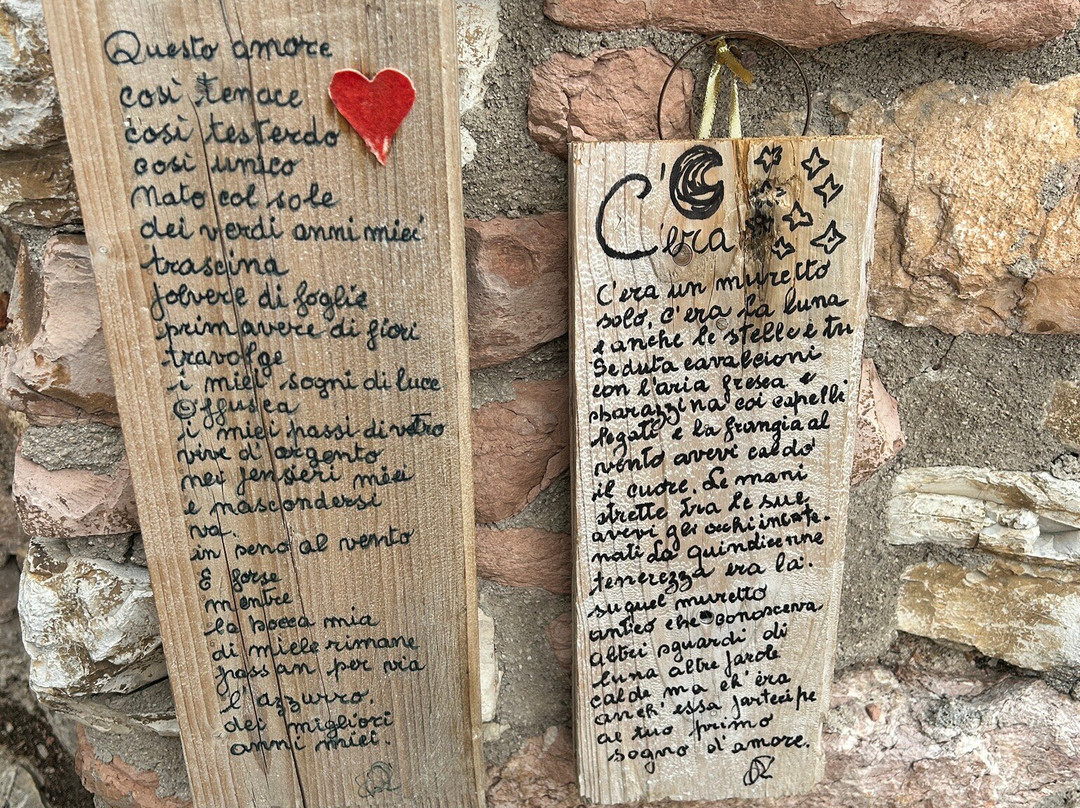 Questo amore
così tenace
così testerdo
così unico
Nato col sole
dei verdi anni miei
trascina
polvere di foglie
primavere di fiori
travolge
i miei sogni di luce
Offusca
i miei passi di vetro
vive d'argento
nei pensieri miei
e nascondersi
va.
in seno al vento
E forse
mentre
la bocca mia
di miele rimane
passan per via
l'azzurro.
dei migliori
anni miei.
C'era
C'era un muretto
solo, c'era la luna
e anche le stelle e tu
Seduta cavalcioni
con l'aria fresca e
sbarazzina coi capelli
legati e la frangia al
vento avevi caldo
il cuore. Le mani
strette tra le sue,
avevi gli occhi incate.
nati La quindicenne
tenerezza era là.
su quel muretto
antico che conosceva
altri sguardi di
luna altre parole
calde ma ch'èra
anch'essa partecipe
al tuo primo
sogno d'amore.